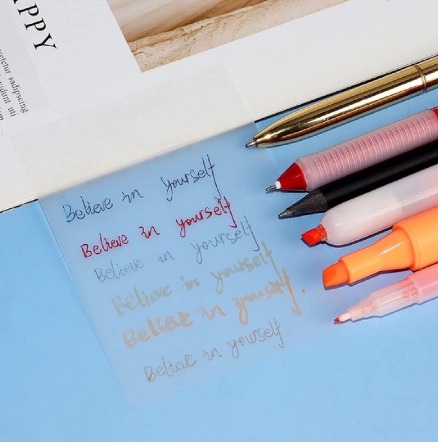 APPY
Believe in yourself
Believe in yourself
Believe in yourself
Believe in yourself
Believe in yourself.
Believe in yourself.